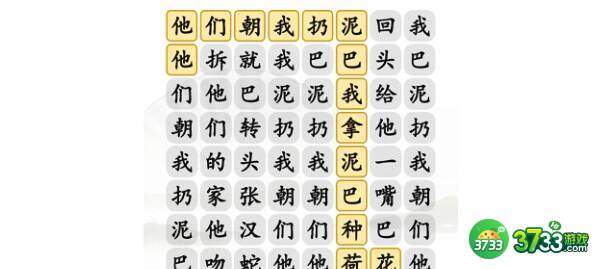 他们朝我扔泥回我
他拆就我巴巴头巴
们他巴泥泥我给泥
朝们转扔扔拿他扔
我的头我我泥一我
扔家张朝朝巴嘴朝
泥他汉们们种巴们
巴吻蛇他他荷花他
3733 3733游戏.com